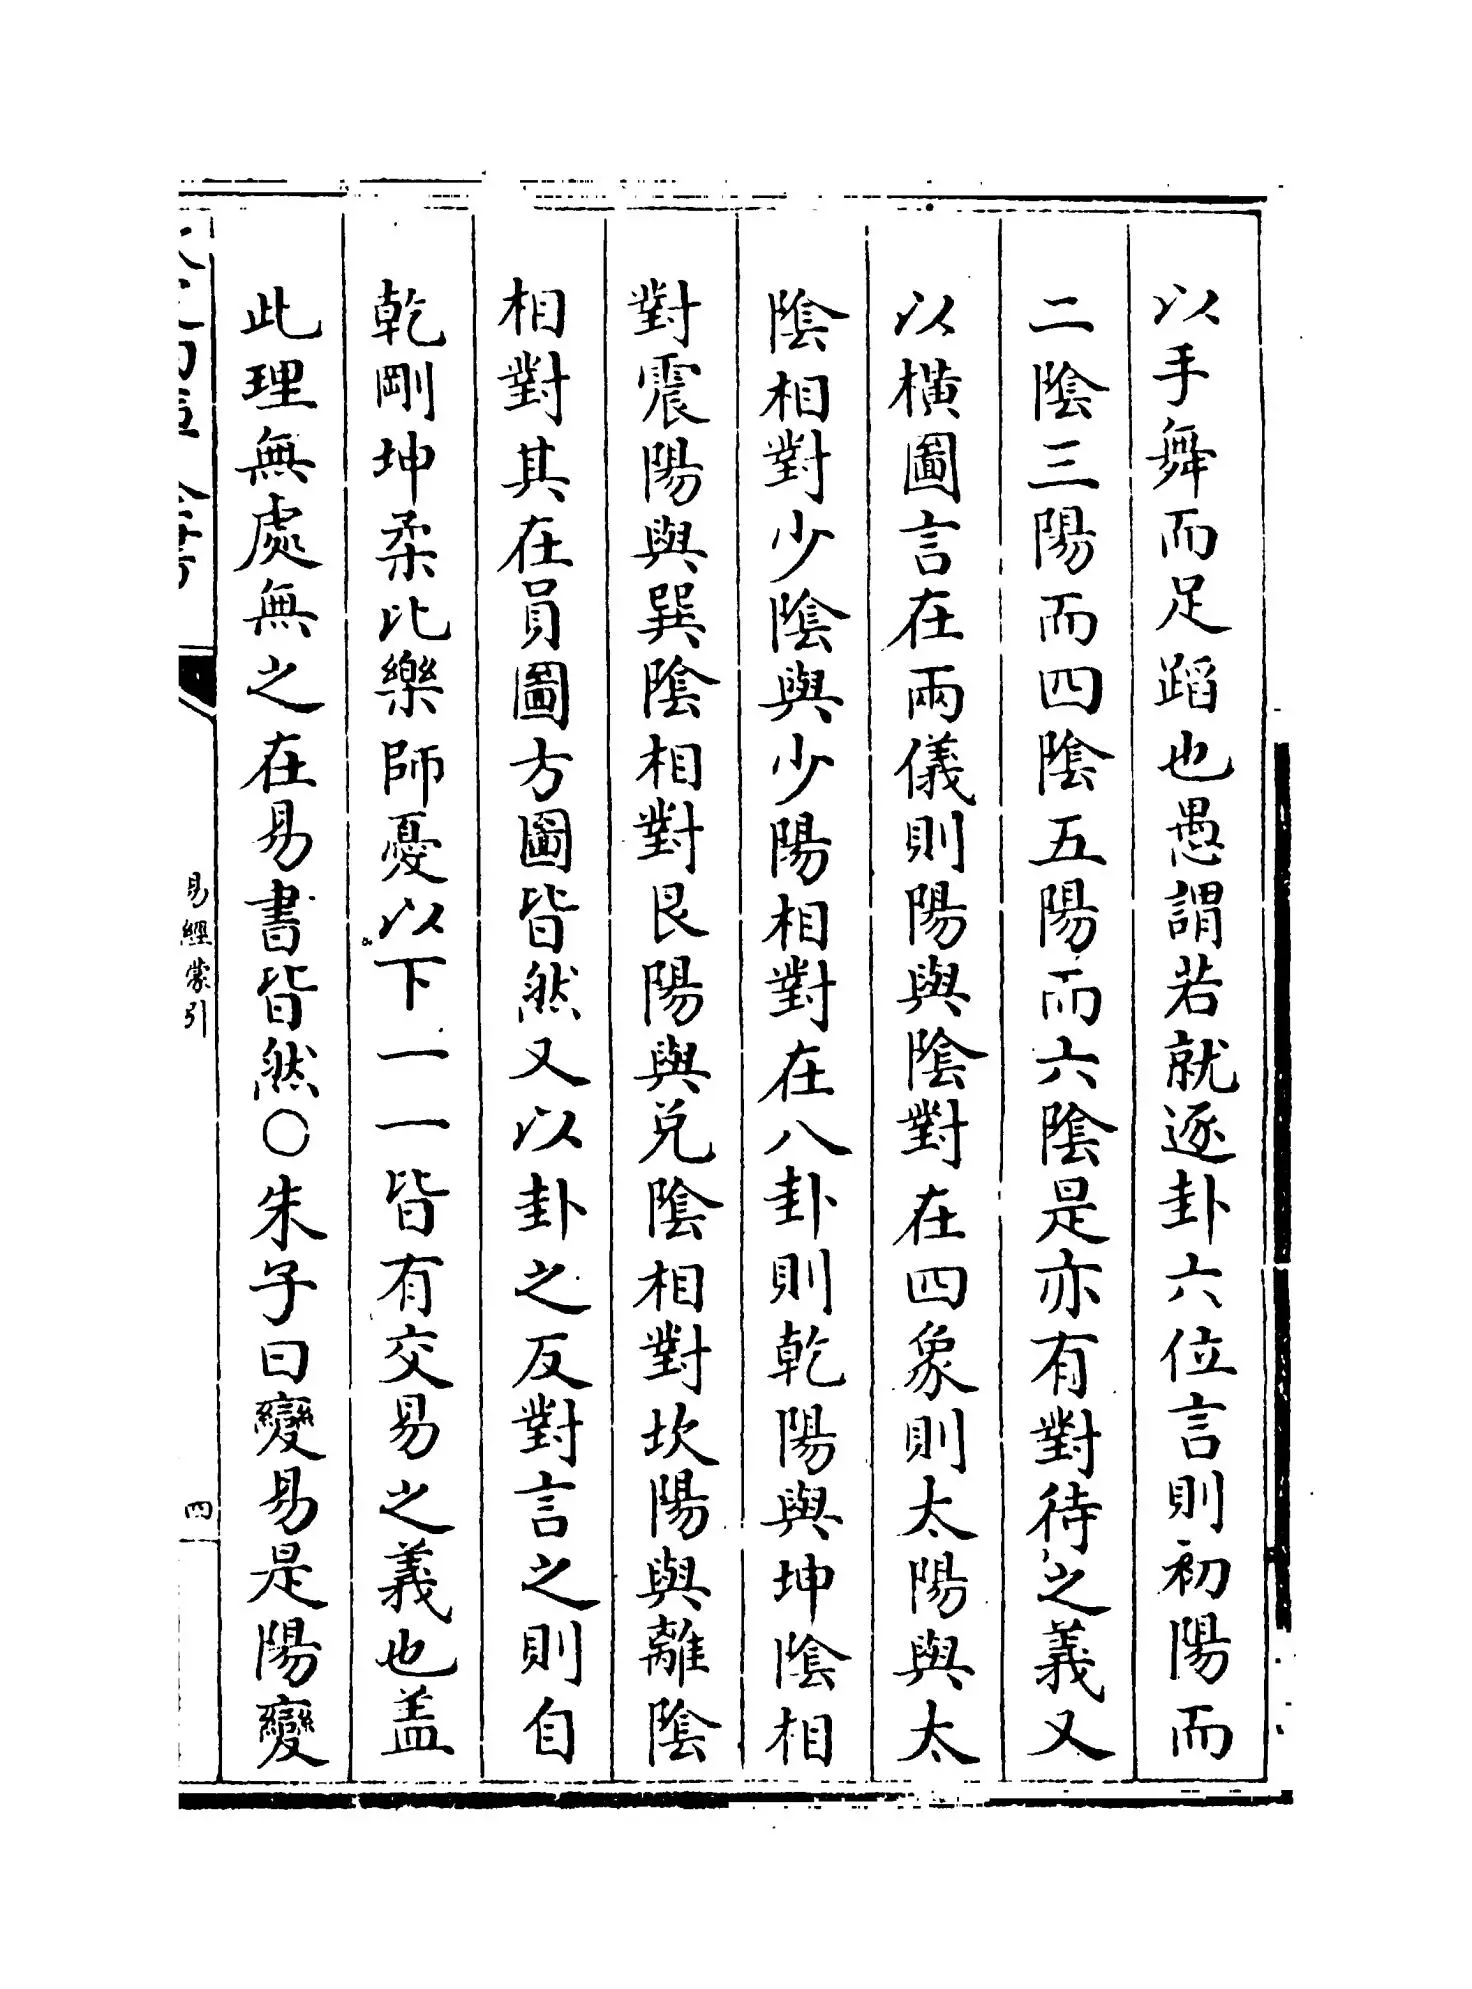 以手舞而足蹈也愚謂若就逐卦六位言則初陽而
二陰三陽而四陰五陽而六陰是亦有對待之義又
以橫圖言在兩儀則陽與陰對在四象則太陽與太
陰相對少陰與少陽相對在八卦則乾陽與坤陰相
對震陽與巽陰相對艮陽與兑陰相對坎陽與離陰
相對其在員圖方圖皆然又以卦之反對言之則自
乾剛坤柔比樂師憂以下一一皆有交易之義也盖
此理無處無之在易書皆然○朱子曰變易是陽變
易經蒙引
四